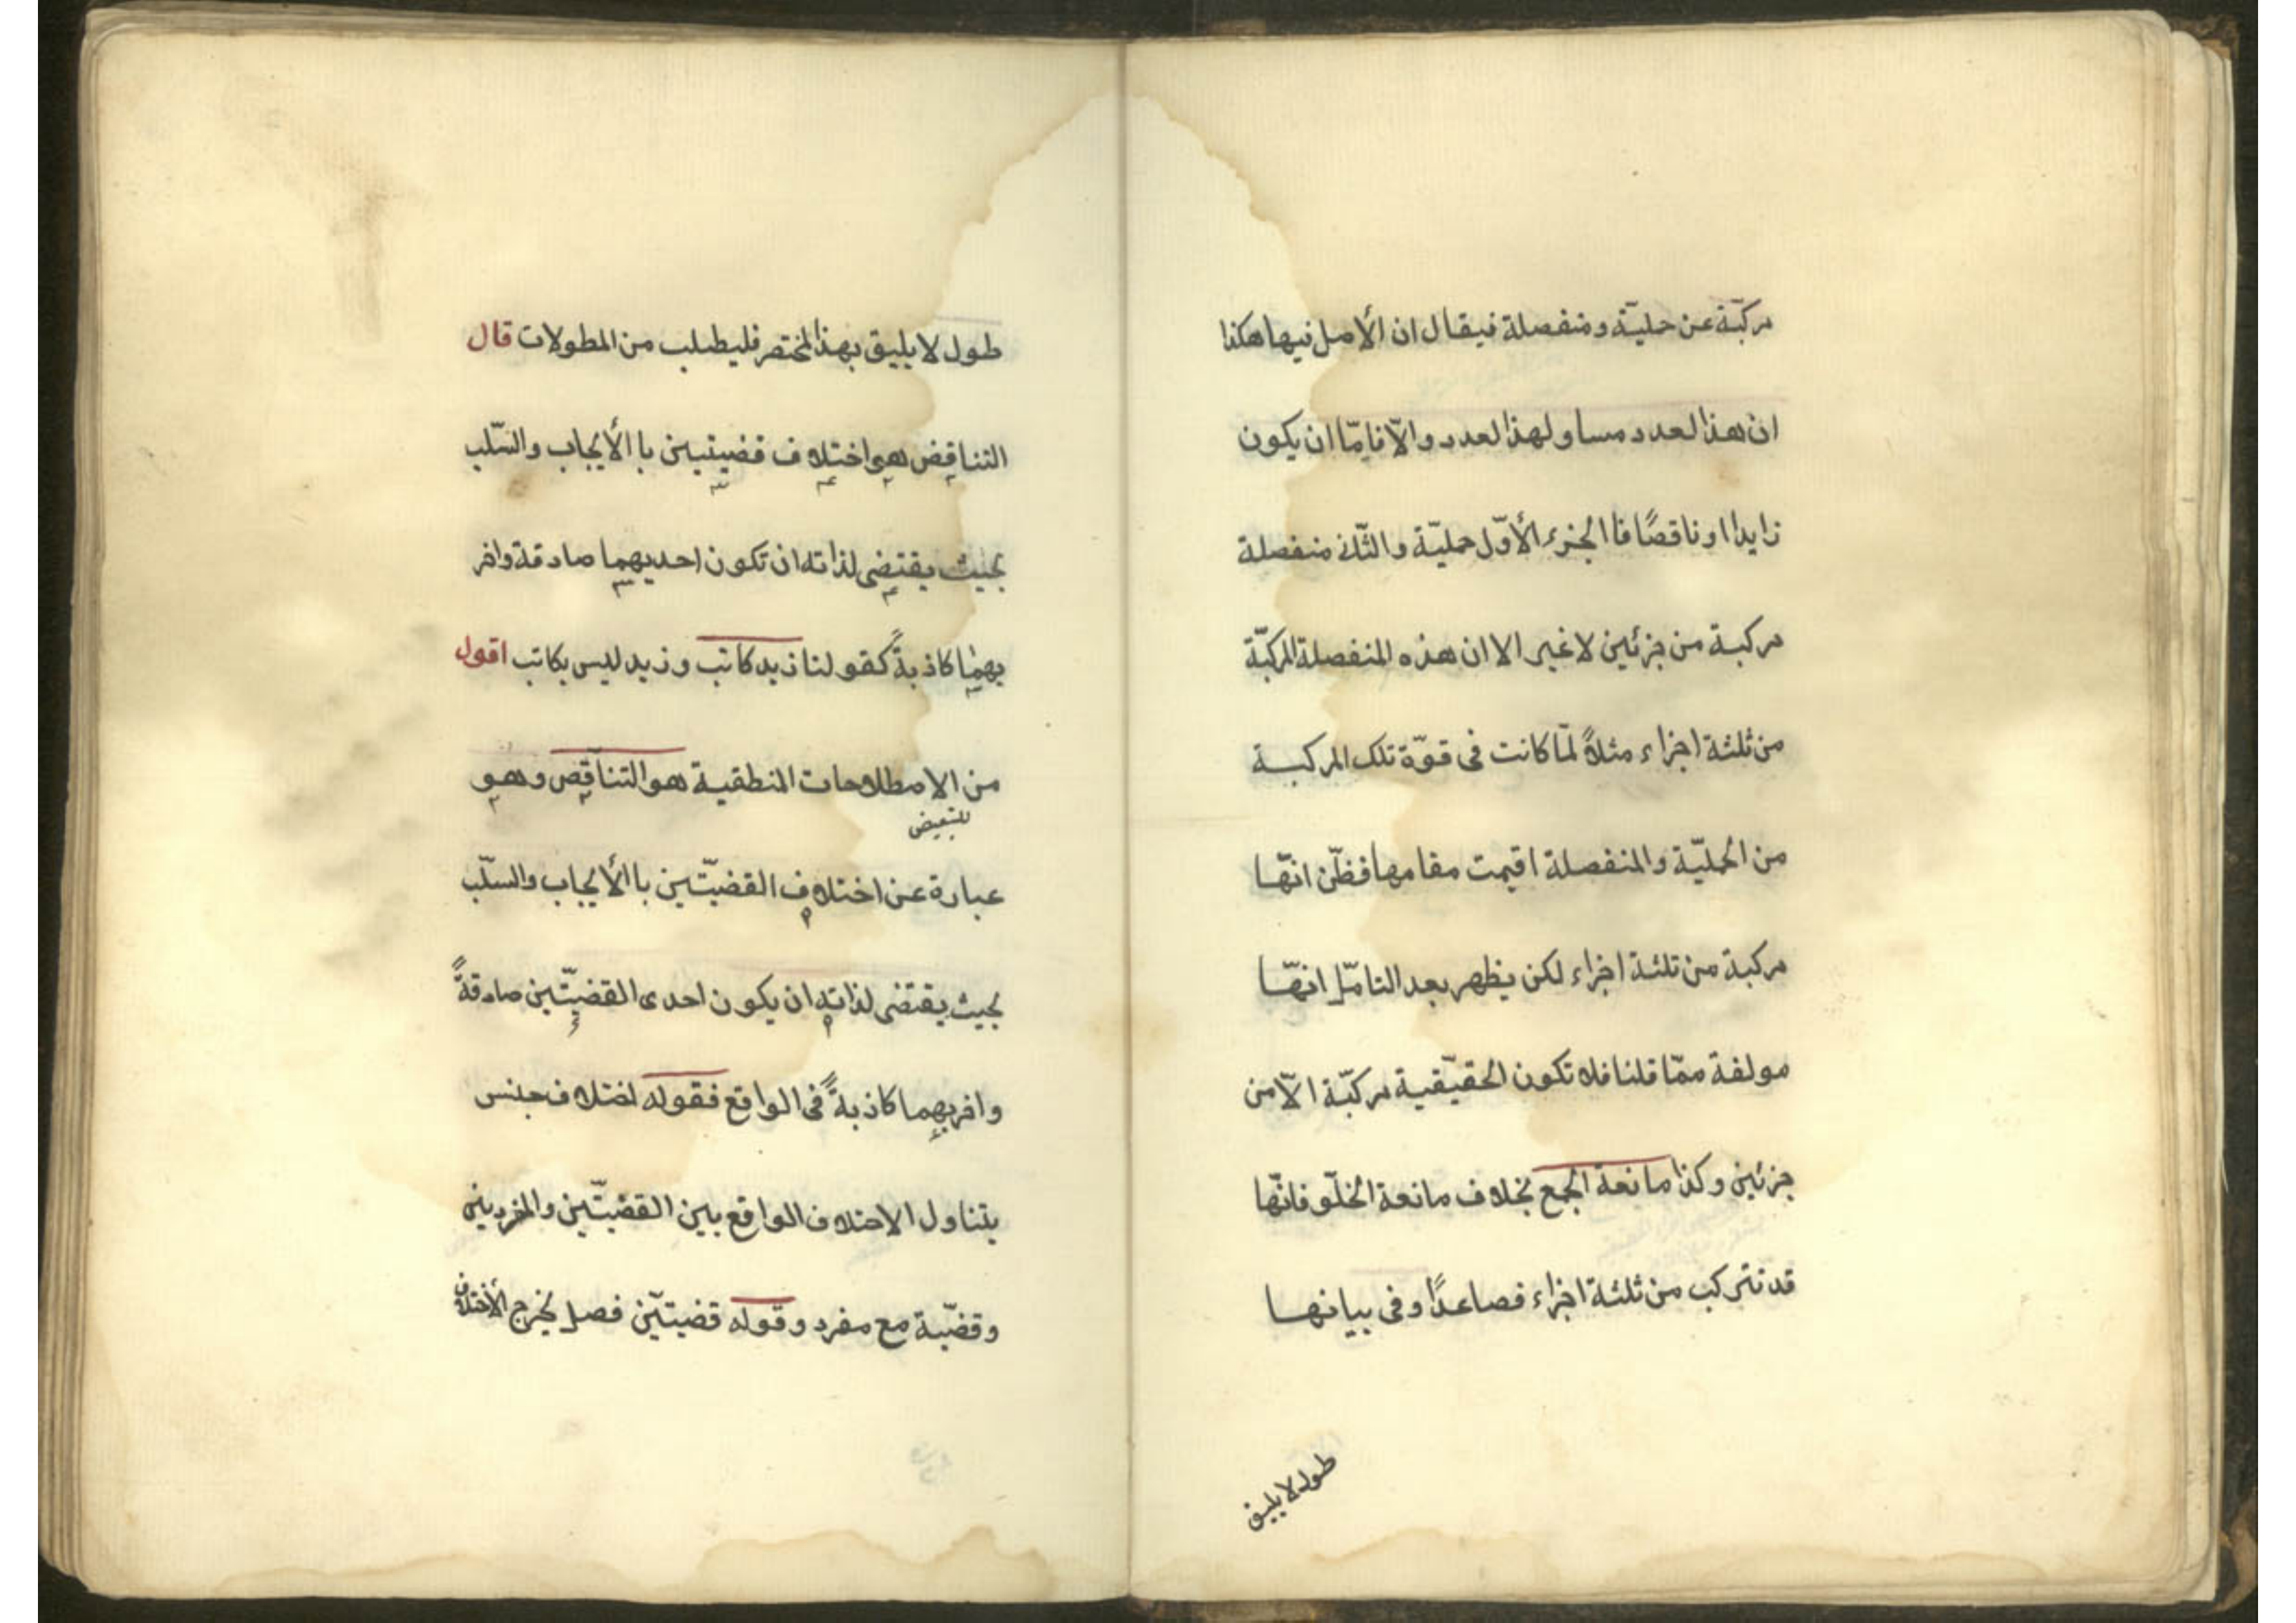 مركبّة عن حمليّة ومنفصلة فيقال ان الأصل فيها هكذا
ان هذا لعدد مساو لهذا لعدد والّا فامّا ان يكون
زايدا او ناقصًا فا الجزء الأوّل حمليّة والثّانى منفصلة
مركبة من جزئين لا غير الا ان هذه المنفصلة المركبّة
من ثلثة اجزاء مثلاً لمّا كانت فى قوّة تلك المركبة
من الحمليّة والمنفصلة اقيمت مقامها فظّن انّها
مركبة من ثلثة اجزاء لكن يظهر بعد التامّل انهّا
مولفة ممّا قلنا فلا تكون الحقيّقية مركبّة الّا من
جزئين وكذا مانعة الجمع بخلاف مانعة الخلّو فانّها
قد تتركب من ثلثة اجزاء فصاعدًا وفى بيانها
طول لا يليق
طول لا يليق بهذا لمختصر فليطلب من المطولات قال
التناقض هو اختلاف قضيتين با الأيجاب والسّلب
بحيث يقتضى لذاته ان تكون احديهما صادقة واخر
يهما كاذبةً كقولنا زيد كاتب وزيد ليس بكاتب اقول
من الاصطلاحات المنطقية هو التناقض وهو
للتبعيض
عبارة عن اختلاف القضيّتين با الأيجاب والسلّب
بحيث يقتضى لذاته ان يكون احدى القضيّتين صادقةً
واخريهما كاذبةً فى الواقع فقوله اختلاف جنس
يتناول الاختلاف الواقع بين القضيّتين والمفردين
وقضيّة مع مفرد وقوله قضيتيّن فصل يخرج الأختلاف